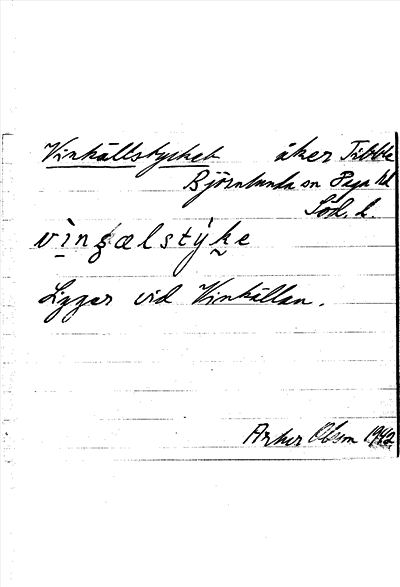 Vinkällstycket åker Tibble
Björnlunda sn Daga hd
Söd. l.
vìngælstýke
Ligger vid Vinkällan.
Olsson 1942